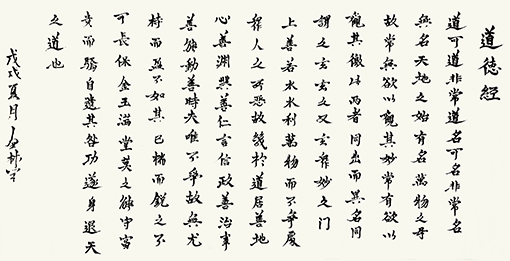 道德經
道可道非常道名可名非常名
無名天地之始有名萬物之母
故常無欲以觀其妙常有欲以
觀其徼此兩者同出而異名同
謂之玄玄之又玄眾妙之门
上善若水水利萬物而不爭處
眾人之所恶故幾於道居善地
心善渊與善仁言信政善治事
善能動善時夫唯不爭故無尤
持而盈不如其已揣而銳之不
可長保金玉滿堂莫之能守富
貴而驕自遗其咎功遂身退天
之道也
戊戌夏月